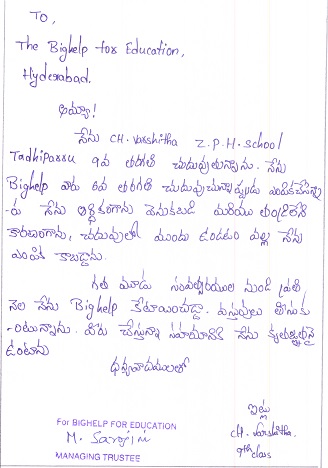 To,
The Bighelp for Education,
Hyderabad.
అమ్మా!
నేను CH. Varshitha Z.P.H. School
Tadhiparru 9వ తరగతి చదువుతున్నాను. నేను
Bighelp వారు 6వ తరగతి చదువుచున్నప్పుడు ఎంపికచేసినా
-రు నేను ఆర్థికంగాను వెనుకబడి మరియు తండ్రిలేని
కారణంగాను, చదువులో ముందు ఉండటం వల్ల నేను
ఎంపిక కాబడ్డాను.
గత మూడు సంవత్సరముల నుండి ప్రతి
నెల నేను Bighelp కేటాయించిన వస్తువులు తీసుకు
-oటున్నాను. మీరు చేస్తున్నా సహాయానికి నేను కృతజ్ఞురాలై
ఉంటాను
ధన్యవాదములతో
ఇట్లు
CH. Varshitha.
9th class
For BIGHELP FOR EDUCATION
M. Sarojini
MANAGING TRUSTEE